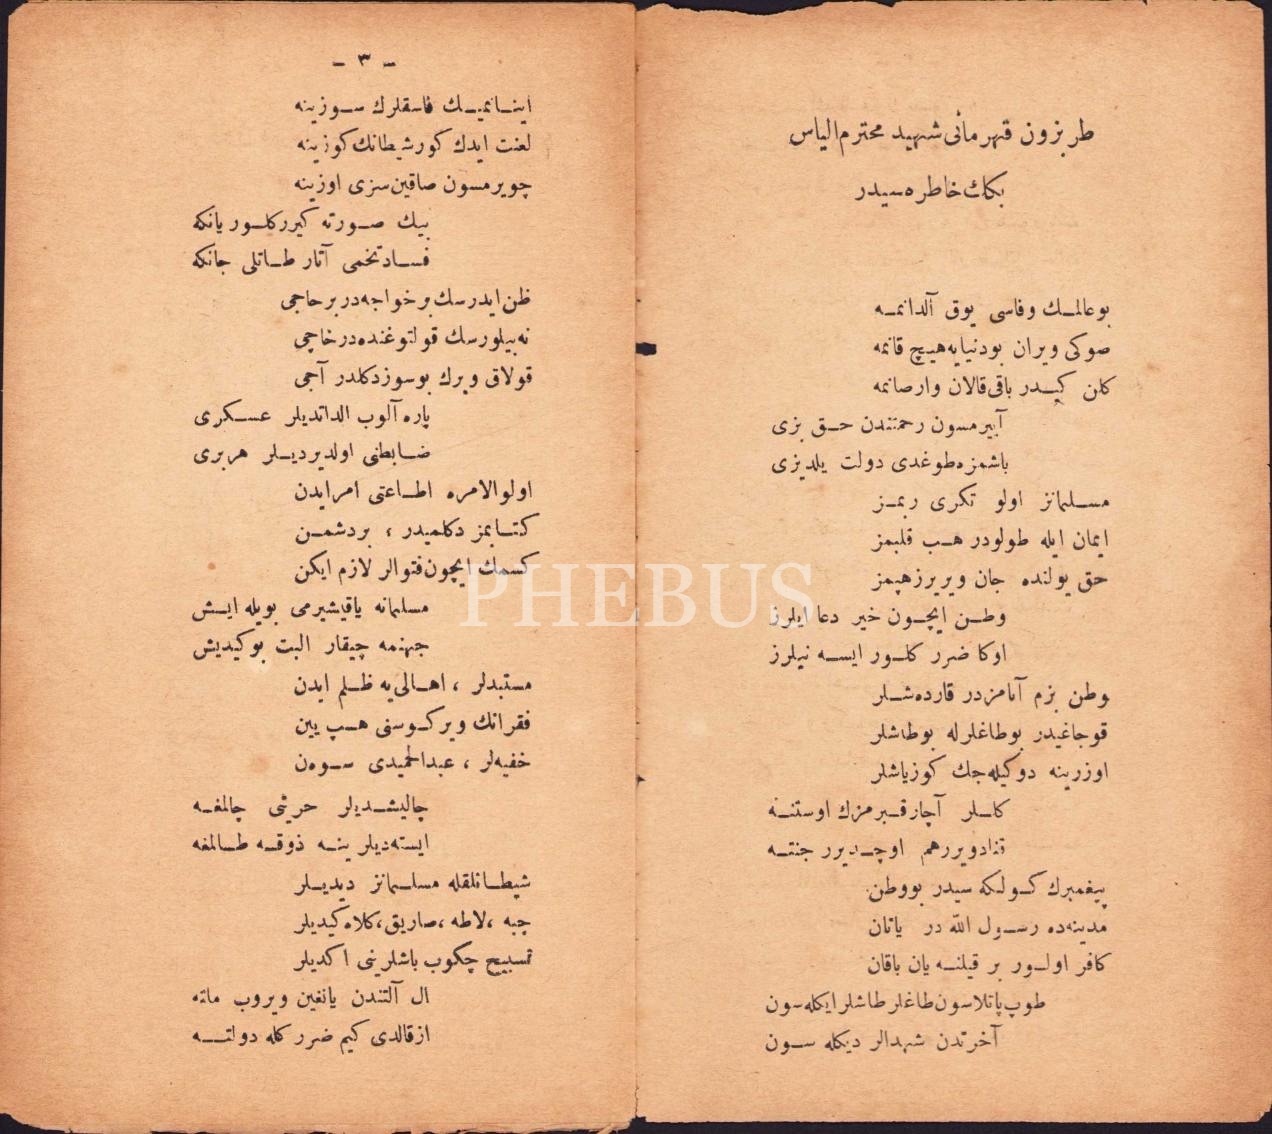 طربزون قهرمانی شهید محترم الیاس
بكك خاطره‌سیدر
بو عالمـك وفاسی یوق آلدانمـه
صوكی ویران بودنیایه هیچ قانمه
كلن كیـدر باقی قالان وارصانمه
آییرمسون رحمتندن حـق بزی
باشمزه طوغدی دولت یلدیزی
مسـلمانز اولو تكری ربمـز
ایمان ایله طولودر هـب قلبمز
حق یولنده جان ویریرز هپمز
وطـن ایچـون خیر دعا ایلرز
اوكا ضرر كلـور ایسـه نیلرز
وطن بزم آنامزدر قارده‌شـلر
قوجاغیدر بوطاغلرله بوطاشلر
اوزرینه دوكیله‌جك كوزیاشلر
كلـلر آچار قـبرمزك اوستنـه
قنادویررهم اوچـدیرر جنتـه
پیغمبرك كـولكه سیدر بووطن
مدینه‌ده رسـول الله در یاتان
كافر اولـور بر قیلنـه یان باقان
طوپ پاتلاسون طاغلر طاشلر ایكله‌سون
آخرتدن شهدالر دیكله سـون
ـ ٣ ـ
اینـانمیـك فاسقلرك سـوزینه
لعنت ایدك كور شیطانك كوزینه
چویرمسون صاقین سزی اوزینه
بیك صـورته كیرركلـور یانكه
فسـادتخمی آتار طـاتلی جانكه
ظن ایدرسك برخواجه‌در برحاجی
نه بیلورسك قولتوغنده‌در خاچی
قولاق ویرك بوسوزدكلدر آجی
پاره آلوب الداتدیلر عسـكری
ضـابطنی اولدیردیـلر هربری
اولوالامره اطـاعتی امر ایدن
كتـابمز دكلمیدر ، بردشمـن
كسمك ایچون فتوالر لازم ایكن
مسلمانه یاقیشیرمی بویله ایـش
جهنمه چیقار البت بوكیدیش
مستبدلر ، اهـالی‌یه ظـلم ایدن
فقرانك ویركـوسنی هـپ یین
خفیه‌لر ، عبدالحمیدی سـوه‌ن
چالیشـدیلر حرثی چالمغـه
ایسته‌دیلر ینـه ذوقـه طـالمغه
شیطـانلقله مسلـمانز دیدیـلر
جبه ، لاطه ، صاریق ، كلاه كیدیلر
تسبیح چكوب باشلرینی اكدیلر
ال آلتندن یانغین ویروب ملته
ازقالدی كیم ضرركله دولتـه
PHEBUS